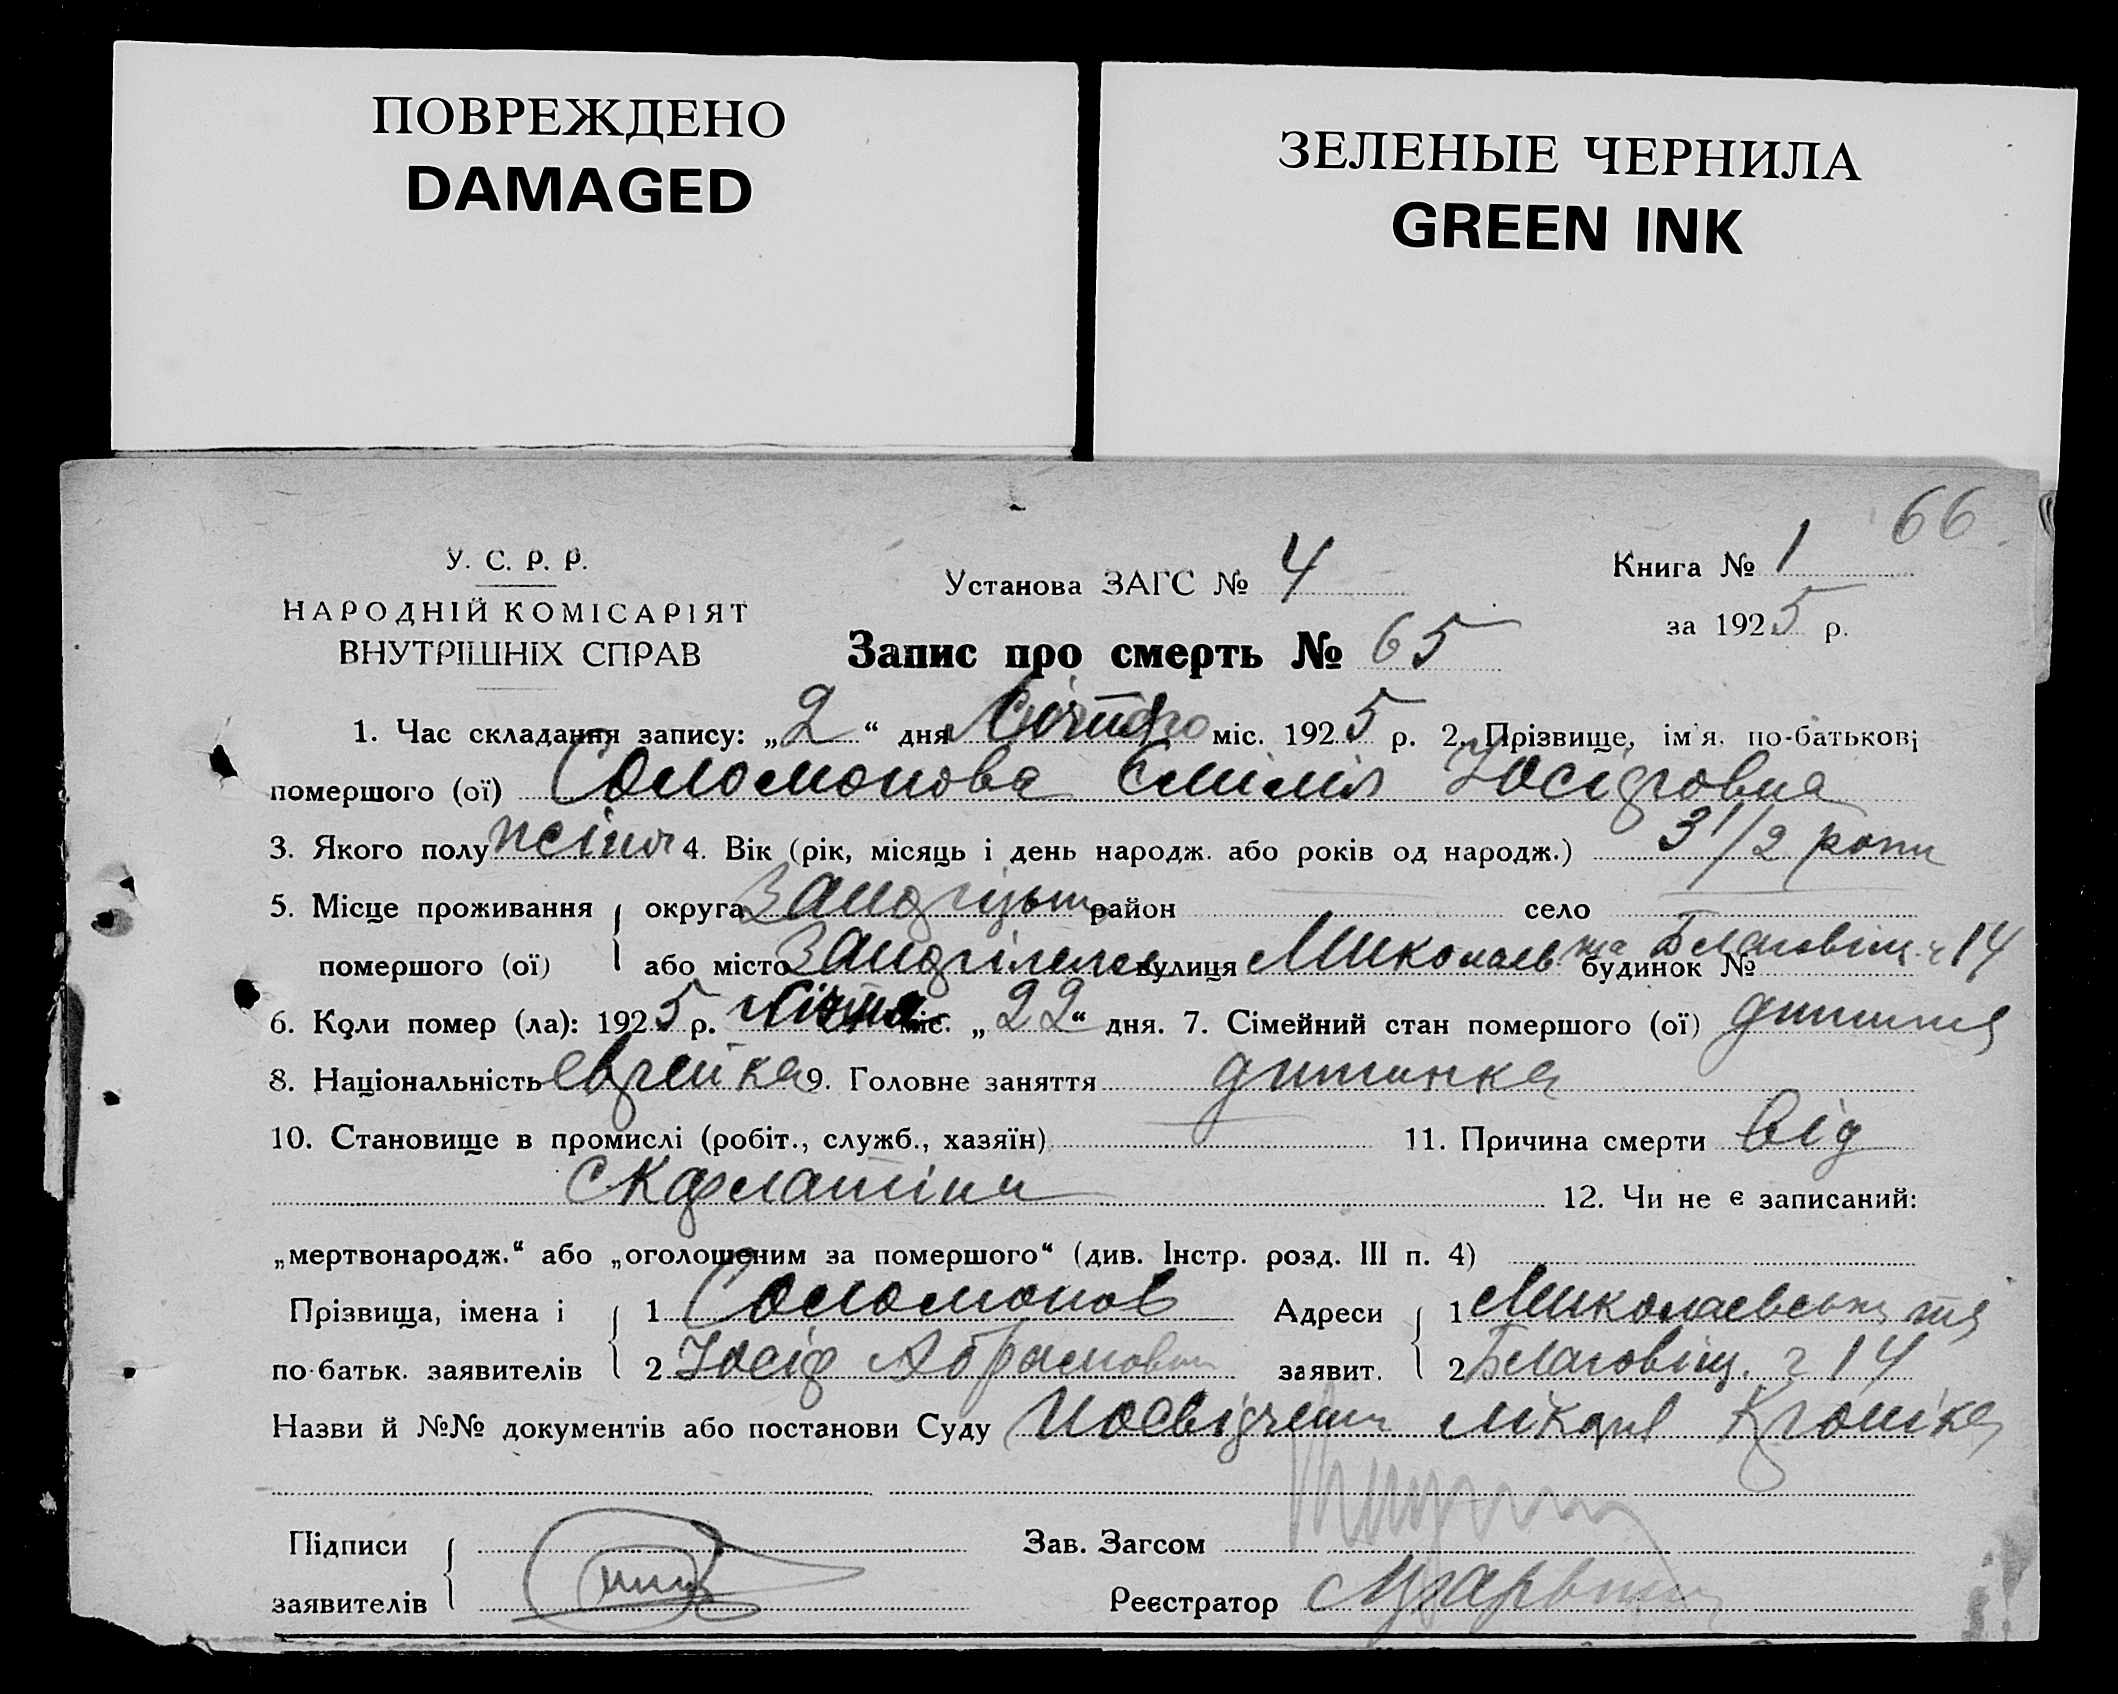 ПОВРЕЖДЕНО
DAMAGED
ЗЕЛЕНЫЕ ЧЕРНИЛА
GREEN INK
66
У. С. Р. Р.
НАРОДНІЙ КОМІСАРІЯТ
ВНУТРІШНІХ СПРАВ
Установа ЗАГС № 4
Книга № 1
за 1925 р.
Запис про смерть № 65
1. Час складання запису: „2“ дня міс. 1925 р. 2. Прізвище, ім'я, по-батькові
помершого (ої) Соломонова Емілія Іосіфовна
3. Якого полу жіноч 4. Вік (рік, місяць і день народж. або років од народж.) 3 1/2 роки
5. Місце проживання округа район село
помершого (ої) або місто вулиця Миколаев та Благовіщ будинок № 14
6. Коли помер (ла): 1925 р. січня міс. „22“ дня. 7. Сімейний стан помершого (ої) дитина
8. Національність еврейка 9. Головне заняття дитинка
10. Становище в промислі (робіт., служб., хазяїн) 11. Причина смерти від
скарлатіни 12. Чи не є записаний:
„мертвонародж.“ або „оголошеним за помершого“ (див. Інстр. розд. III п. 4)
Прізвища, імена і 1 Соломонов Адреси 1 Миколаевськи та
по-батьк. заявителів 2 Іосіф Абрамович заявит. 2 Благовіщ. 14
Назви й №№ документів або постанови Суду Посвідчення лікаря Кроніка
Підписи Зав. Загсом
заявителів Реєстратор